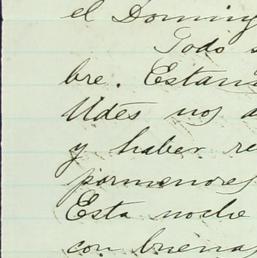 el Doming
Todo s
bre. Estam
Udes nos a
y haber re
pormenores
Esta noche
con buenas